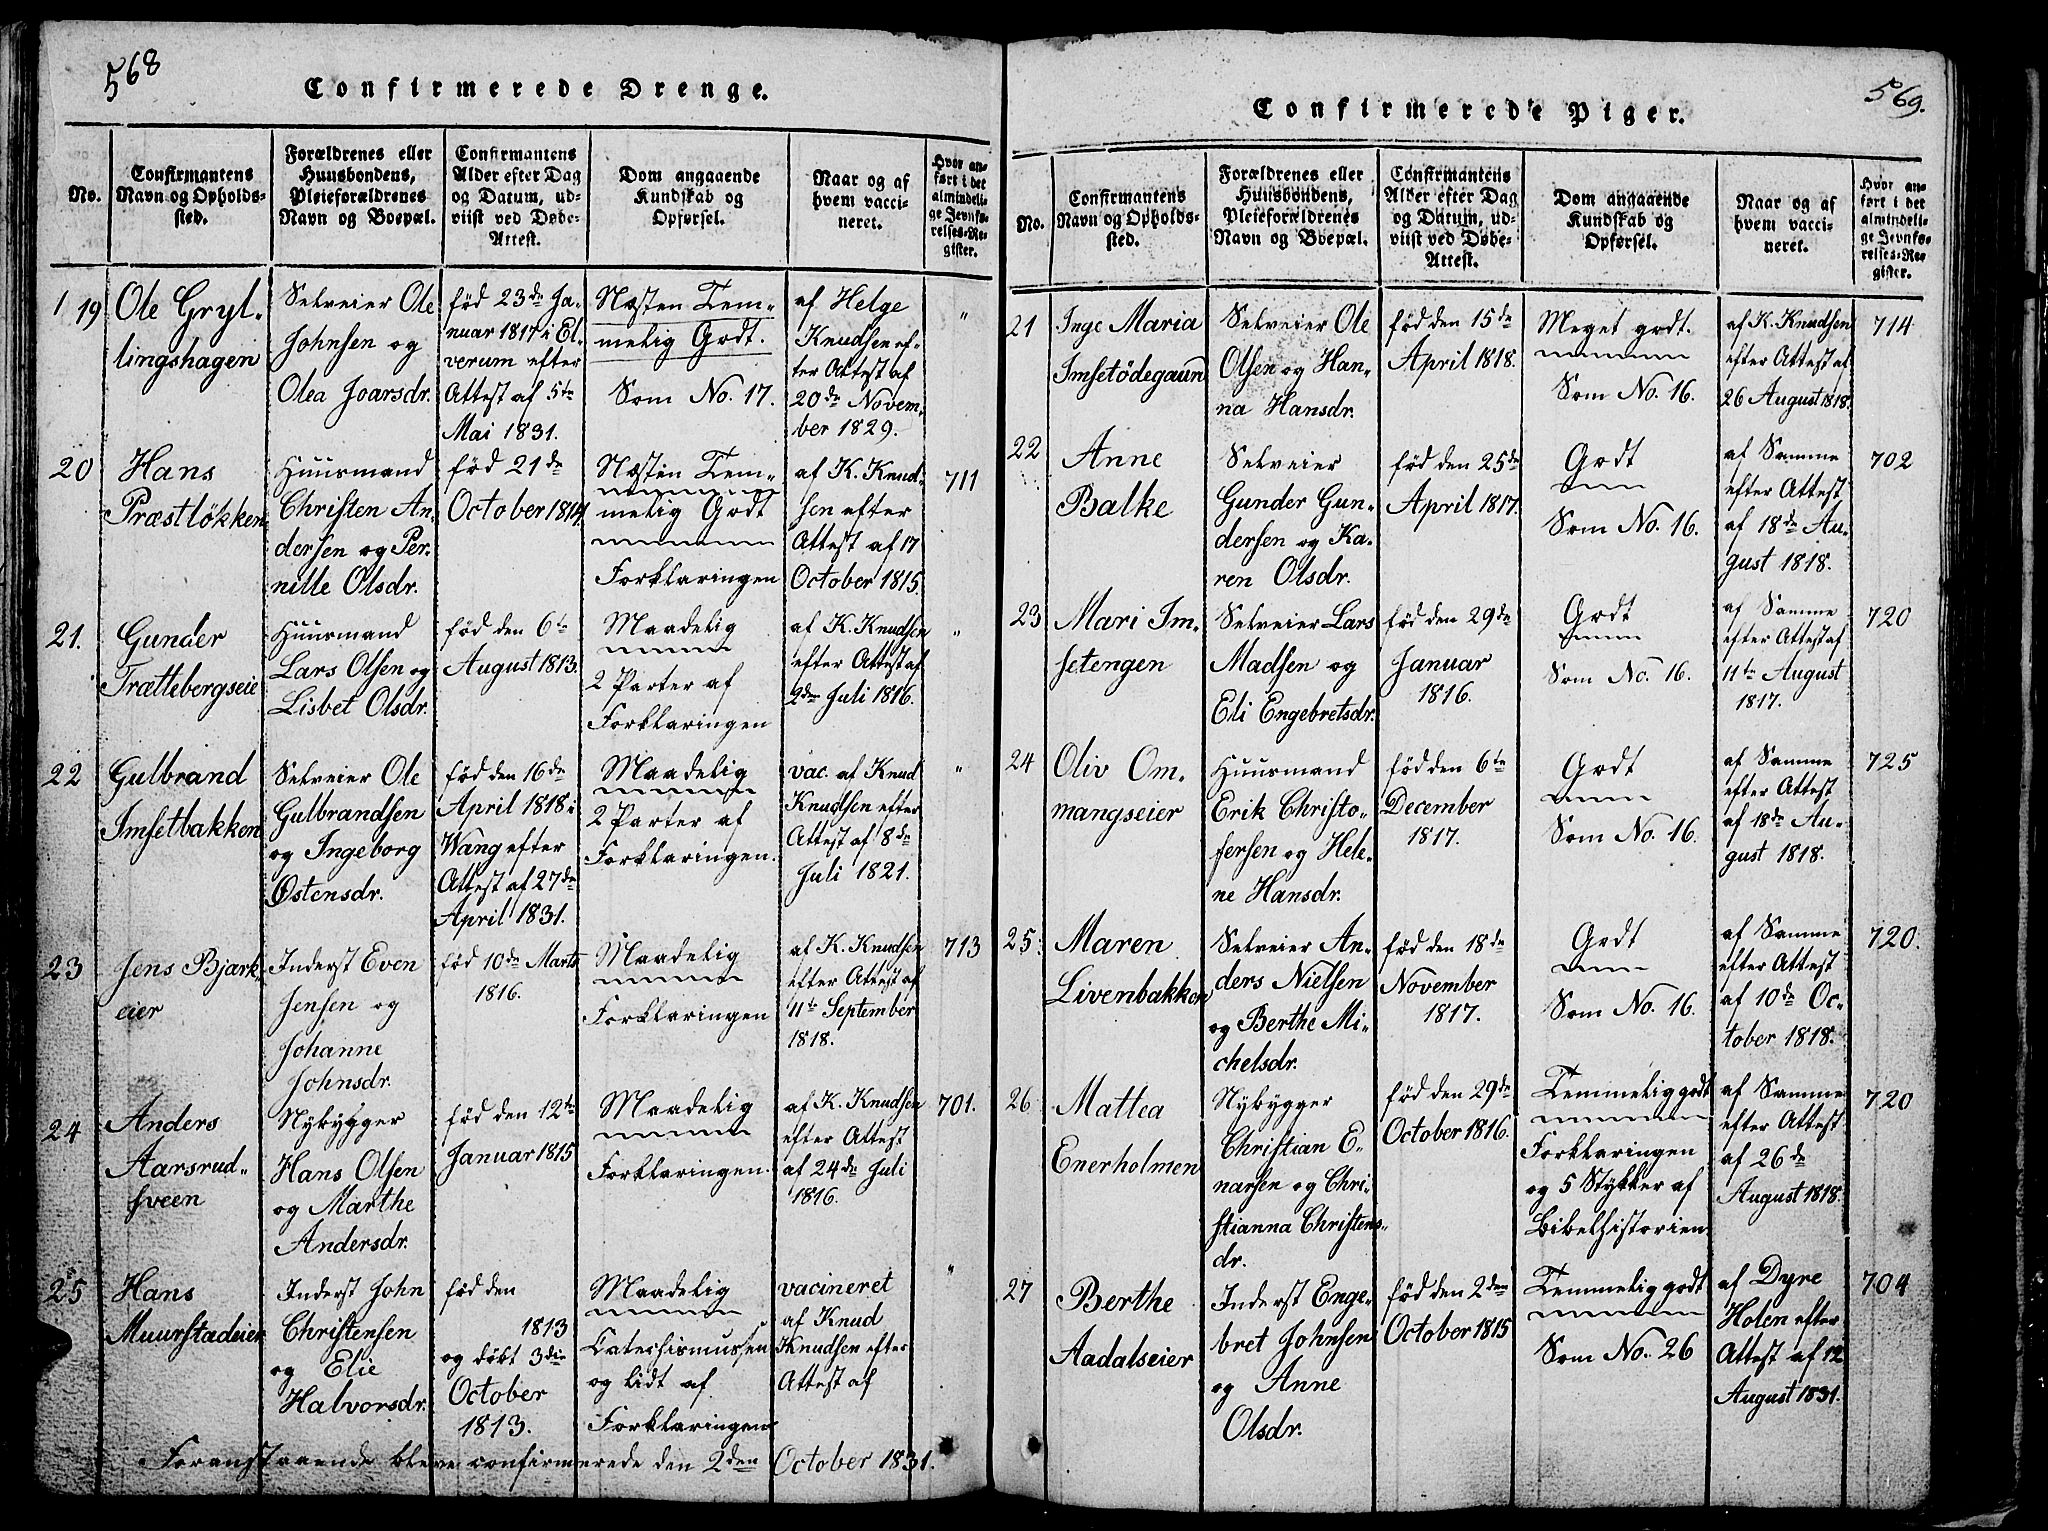 568
Confirmerede Drenge.
No.
Confirmantens
Navn og Opholds-
sted.
Forældrenes eller
Huusbondens,
Pleieforældrenes
Navn og Boepæl.
Confirmantens
Alder efter Dag
og Datum, ud-
viist ved Døbe-
Attest.
Dom angaaende
Kundskab og
Opførsel.
Naar og af
hvem vacci-
neret.
Hvor an-
ført i det
almindeli-
ge Jevnfø-
relses-Re-
gister.
19
Ole Gryl-
lingshagen
Selveier Ole
Johnsen og
Olea Joarsdr.
fød 23de Ja-
nuar 1817 i El-
verum efter
Attest af 5te
Mai 1831.
Næsten Tem-
melig Godt.
Som No. 17.
af Helge
Knudsen ef-
ter Attest af
20de Novem-
ber 1829.
"
20
Hans
Præstløkken
Huusmand
Christen An-
dersen og Per-
nille Olsdr.
fød 21de
October 1814
Næsten Tem-
melig Godt
Forklaringen
af K. Knud-
sen efter
Attest af 17
October 1815.
711
21.
Gunder
Trættebergseie
Huusmand
Lars Olsen og
Lisbet Olsdr.
fød den 6te
August 1813.
Maadelig
2 Parter af
Forklaringen
af K. Knudsen
efter Attest af
2den Juli 1816.
"
22
Gulbrand
Imsetbakken
Selveier Ole
Gulbrandsen
og Ingeborg
Østensdr.
fød den 16de
April 1818 i
Wang efter
Attest af 27de
April 1831.
Maadelig
2 Parter af
Forklaringen.
vac. af Knud
Knudsen efter
Attest af 8de
Juli 1821.
"
23
Jens Bjørk-
eier
Inderst Even
Jensen og
Johanne
Johnsdr.
fød 10de Marts
1816.
Maadelig
Forklaringen
af K. Knudsen
efter Attest af
11te September
1818.
713
24
Anders
Aarsrud-
sveen
Nybygger
Hans Olsen
og Marthe
Andersdr.
fød den 12te
Januar 1815
Maadelig
Forklaringen.
af K. Knudsen
efter Attest
af 24de Juli
1816.
701.
25
Hans
Muurstadeier
Inderst John
Christensen
og Elie
Halvorsdr.
fød den
1813
og døbt 3die
October
1813.
Maadelig
Catechismussen
og lidt af
Forklaringen
vacineret
af Knud
Knudsen efter
Attest af
"
Foranstaaende bleve confirmerede den 2den October 1831.
569.
Confirmerede Piger.
No.
Confirmantens
Navn og Opholds-
sted.
Forældrenes eller
Huusbondens,
Pleieforældrenes
Navn og Boepæl.
Confirmantens
Alder efter Dag
og Datum, ud-
viist ved Døbe-
Attest.
Dom angaaende
Kundskab og
Opførsel.
Naar og af
hvem vacci-
neret.
Hvor an-
ført i det
almindeli-
ge Jevnfø-
relses-Re-
gister.
21
Inge Maria
Imsetødegaun
Selveier Ole
Olsen og Han-
na Hansdr.
fød den 15de
April 1818.
Meget godt.
Som No. 16.
af K. Knudsen
efter Attest af
26 August 1818.
714
22
Anne
Balke
Selveier
Gunder Gun-
dersen og Ka-
ren Olsdr.
fød den 25de
April 1817.
Godt
Som No. 16.
af Samme
efter Attest
af 18de Au-
gust 1818.
702
23
Mari Im-
setengen
Selveier Lars
Madsen og
Eli Engebretsdr.
fød den 29de
Januar
1816.
Godt
Som No. 16.
af Samme
efter Attest af
11te August
1817.
720
24
Oliv Om-
mangseier
Huusmand
Erik Christo-
fersen og Hele-
ne Hansdr.
fød den 6te
December
1817.
Godt
Som No. 16.
af Samme
efter Attest
af 18de Au-
gust 1818.
725
25
Maren
Livenbakken
Selveier An-
ders Nielsen
og Berthe Mi-
chelsdr.
fød den 18de
November
1817.
Godt
Som No. 16.
af Samme
efter Attest
af 10de Oc-
tober 1818.
720.
26
Mattea
Enerholmen
Nybygger
Christian E-
narsen og Chri-
stianna Christens-
dr.
fød den 29de
October 1816.
Temmelig godt
Forklaringen
og 5 Stykker af
Bibelhistorien
af Samme
efter Attest
af 26de
August 1818.
720
27
Berthe
Aadalseier
Inderst Enge-
bret Johnsen
og Anne
Olsdr.
fød den 2den
October 1815
Temmelig godt
Som No. 26
af Dyre
Holen efter
Attest af 12
August 1831.
704